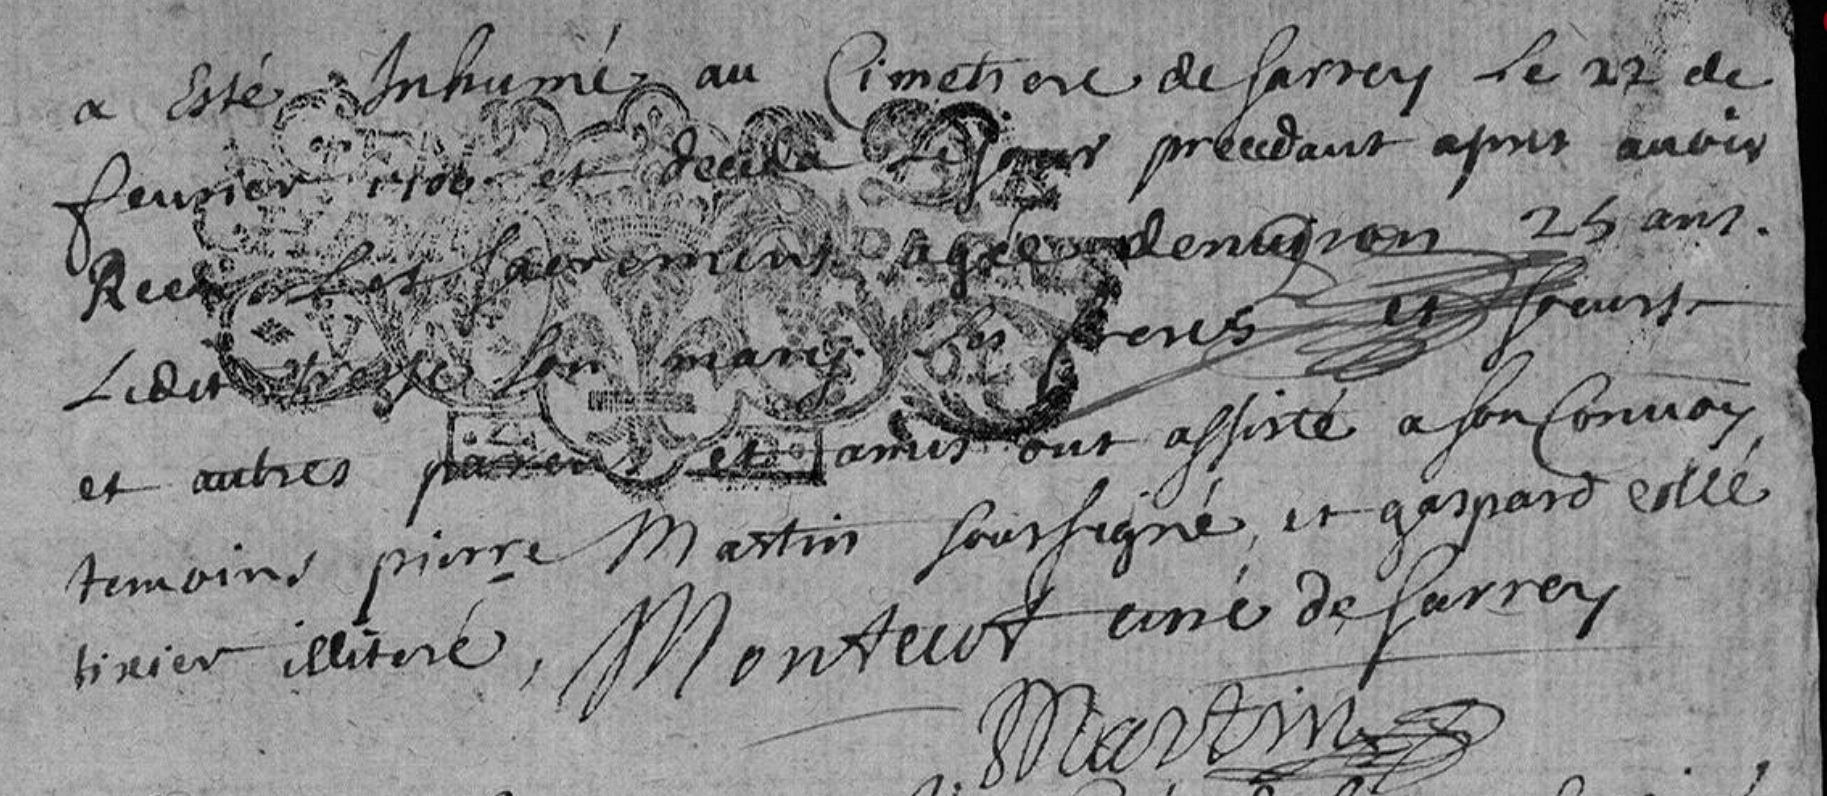 a Esté Inhumé au Cimetiere de sarrey Le 22 de
feurier 1700 et deceda le jour precedant apres auoir
Receu les sacremens agée denuiron 25 ans.
Ledit son mary ses freres et soeurs
et autres parens et amis ont assisté a son Conuoy
temoins pierre Martin soussigné, et gaspard collé
tixier illiteré, Monteuot curé de sarrey
Martin